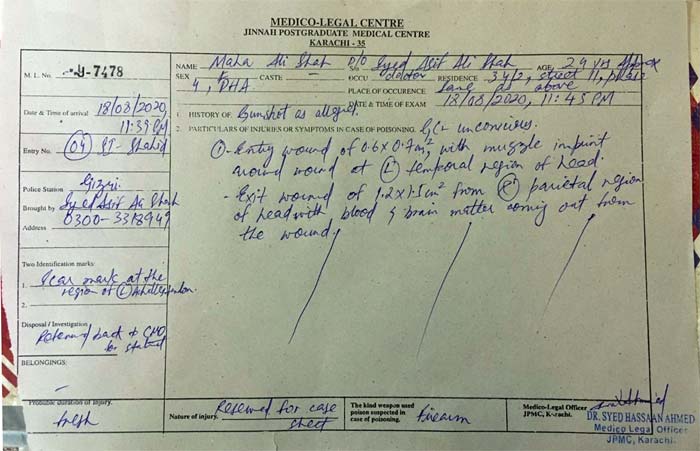 MEDICO-LEGAL CENTRE
JINNAH POSTGRADUATE MEDICAL CENTRE
KARACHI - 35
M. L. No. 7478
NAME Maha Ali Shah D/O Syed Asif Ali Shah AGE 24 yrs Approx
SEX F CASTE — OCCU Doctor RESIDENCE 34/2, Street 11, phase
4, DHA PLACE OF OCCURENCE Same as above
Date & Time of arrival 18/08/2020, 11:39 PM
DATE & TIME OF EXAM 18/08/2020, 11:45 PM
1. HISTORY OF: Gunshot as alleged.
2. PARTICULARS OF INJURIES OR SYMPTOMS IN CASE OF POISONING. G/C unconcious.
Entry No. 09
Shahid
① - Entry wound of 0.6x0.7cm², with muzzle imprint
around wound at (L) temporal region of head.
- Exit wound of 1.2x1.5cm² from (R) parietal region
of head with blood & brain matter coming out from
the wound.
Police Station Gizri.
Brought by Syed Asif Ali Shah
Address 0300-3378949
Two Identification marks:
1. Scar mark at the
region of (L) Achilles tendon.
2.
Disposal / Investigation
Referred back to CMO
BELONGINGS:
—
Probable duration of injury.
fresh
Nature of injury. Reserved for case
sheet
The kind weapon used
poison suspected in
case of poisoning.
Firearm
Medico-Legal Officer
JPMC, Karachi.
DR. SYED HASSAAN AHMED
Medico Legal Officer
JPMC, Karachi.